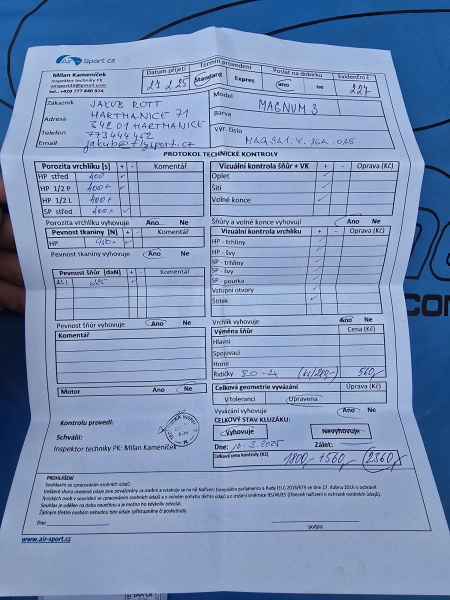 Air Sport.cz
Milan Kameníček
Inspektor techniky PK
airsport10@gmail.com
tel.: +420 777 840 974
Datum přijetí
Termín provedení
Poslat na dobírku
Evidenční č.
Standard
Expres
ano
ne
227
Zákazník JAKUB ROTT
Adresa HARTMANICE 71
34201 HARTMANICE
Telefon 773444452
Email jakub@flysport.cz
Model MAGNUM 3
Barva
Výr. číslo
PROTOKOL TECHNICKÉ KONTROLY
Porozita vrchlíku [s] + - Komentář
HP střed 400
HP 1/2 P 400+
HP 1/2 L 400+
SP střed 400+
Porozita vrchlíku vyhovuje Ano Ne
Pevnost tkaniny [N] + - Komentář
HP
Pevnost tkaniny vyhovuje Ano Ne
Pevnost šňůr [daN] + - Komentář
Pevnost šňůr vyhovuje Ano Ne
Komentář
Motor Ano Ne
Vizuální kontrola šňůr + VK + - Oprava (Kč)
Oplet
Šití
Volné konce
Šňůry a volné konce vyhovují Ano Ne
Vizuální kontrola vrchlíku + - Oprava (Kč)
HP - trhliny
HP - švy
SP - trhliny
SP - švy
SP - poutka
Vstupní otvory
Štítek
Vrchlík vyhovuje Ano Ne
Výměna šňůr Cena (Kč)
Hlavní
Spojovací
Horní
Řidičky 560
Celková geometrie vyvázání Úprava (Kč)
V toleranci Upravena
Vyvázání vyhovuje Ano Ne
CELKOVÝ STAV KLUZÁKU:
Vyhovuje
Nevyhovuje
Dne: 10.3.2025 Zálet:
Celková cena kontroly (Kč) 1800 + 560 2360
Kontrolu provedl:
Schválil:
Inspektor techniky PK: Milan Kameníček
PROHLÁŠENÍ
Souhlasím se zpracováním osobních údajů.
Dne
podpis
www.air-sport.cz